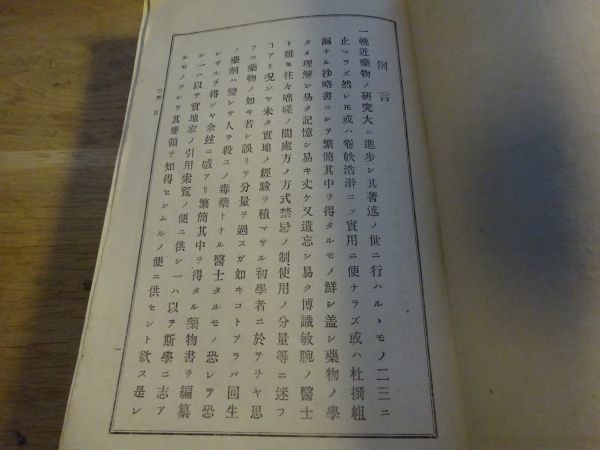 例言
一輓近藥物ノ研究大ニ進步シ其著述ノ世ニ行ハルヽモノ二三ニ
止マラズ然レ𪜈或ハ卷帙浩瀚ニ〆實用ニ便ナラズ或ハ杜撰粗
漏ナル抄略書ニシテ繁簡其中ヲ得タルモノ鮮シ盖シ藥物ノ學
タル理解シ易ク記憶シ易キ丈ケ又遺忘シ易ク博識敏腕ノ醫士
ト雖𪜈往々咄嗟ノ間處方ノ方式禁忌ノ制、使用ノ分量等ニ迷フ
コアリ况ンヤ未タ實地ノ經驗ヲ積マサル初學者ニ於テヲヤ思
フニ藥物ノ如キ若シ誤リテ分量ヲ過スガ如キコトアラバ回生
ノ藥劑ハ變シテ人ヲ殺スノ毒藥トナル醫士タルモノ恐レテ恐
レザルヲ得ンヤ余玆ニ感アリ繁簡其中ヲ得タル藥物書ヲ編纂
シ一ハ以テ實地家ノ引用索覧ノ便ニ供シ一ハ以テ斯學ニ志ア
ルモノヲシテ其要領ヲ知得セシムルノ便ニ供セント欲ス是レ
〇例言
一